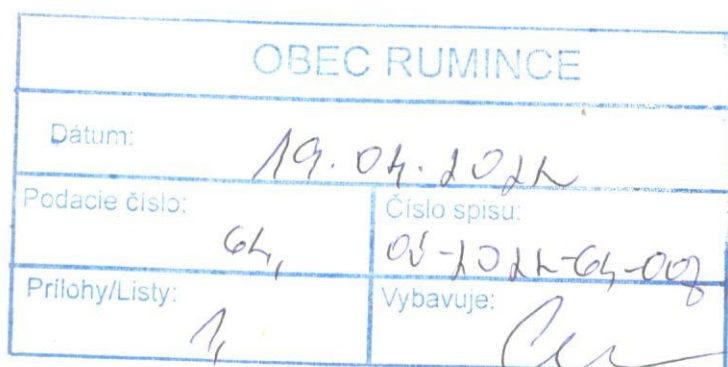 OBEC RUMINCE
Dátum: 19.04.2024
Podacie číslo: 64,
Číslo spisu:
Prílohy/Listy: 1,
Vybavuje: